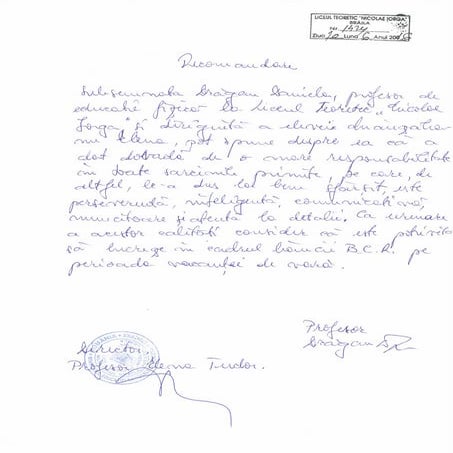 LICEUL TEORETIC "NICOLAE IORGA"
BRĂILA
Nr. 1474
Ziua 10 Luna 6 Anul
Recomandare
Subsemnata Drăgan Daniela, profesor de
educatie fizică la Liceul Teoretic „Nicolae
Iorga" și dirigintă a elevei
Elena, pot spune despre ea că a
dat dovadă de o mare responsabilitate
în toate sarcinile primite, pe care, de
altfel, le-a dus la bun sfârșit, este
perseverentă, inteligentă, comunicativă,
muncitoare și atentă la detalii. Ca urmare
a acestor calități consider că este potrivită
să lucreze în cadrul băncii B.C.R. pe
perioada vacanței de vară.
Profesor
Drăgan D
Director,
Profesor Elena Tudor.